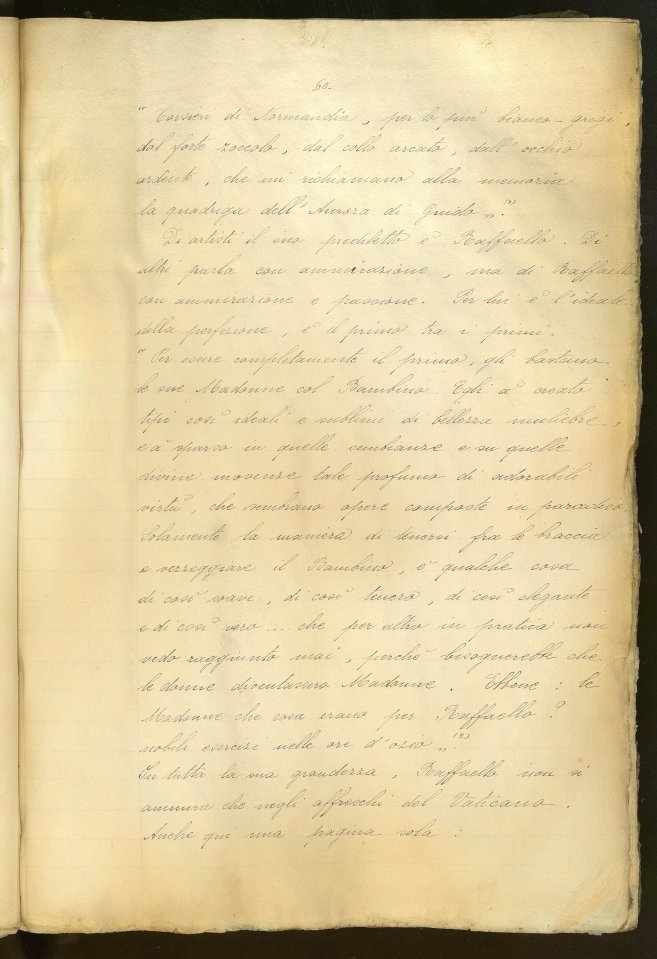 60.
" Corsieri di Normandia, per lo più bianco-grigi,
dal forte zoccolo, dal collo arcato, dall'occhio
ardente, che mi richiamano alla memoria
la quadriga dell'Aurora di Guido „. "
Di artisti il suo prediletto è Raffaello. Di
altri parla con ammirazione, ma di Raffaello
con ammirazione e passione. Per lui è l'ideale
della perfezione, è il primo tra i primi.
" Per essere completamente il primo, gli bastano
le sue Madonne col Bambino. Egli à creato
tipi così ideali e sublimi di bellezza muliebre,
e à sparso in quelle sembianze e su quelle
divine movenze tale profumo di adorabili
virtù, che sembrano opere composte in paradiso.
Solamente la maniera di tenersi fra le braccia
e vezzeggiare il Bambino, è qualche cosa
di così soave, di così tenero, di così elegante
e di così vero ... che per altro in pratica non
vedo raggiunto mai, perchè bisognerebbe che
le donne diventassero Madonne. Ebbene: le
Madonne che cosa erano per Raffaello?
nobili esercizi nelle ore d'ozio „. (2)
In tutta la sua grandezza, Raffaello non si
ammira che negli affreschi del Vaticano.
Anche qui una pagina sola: